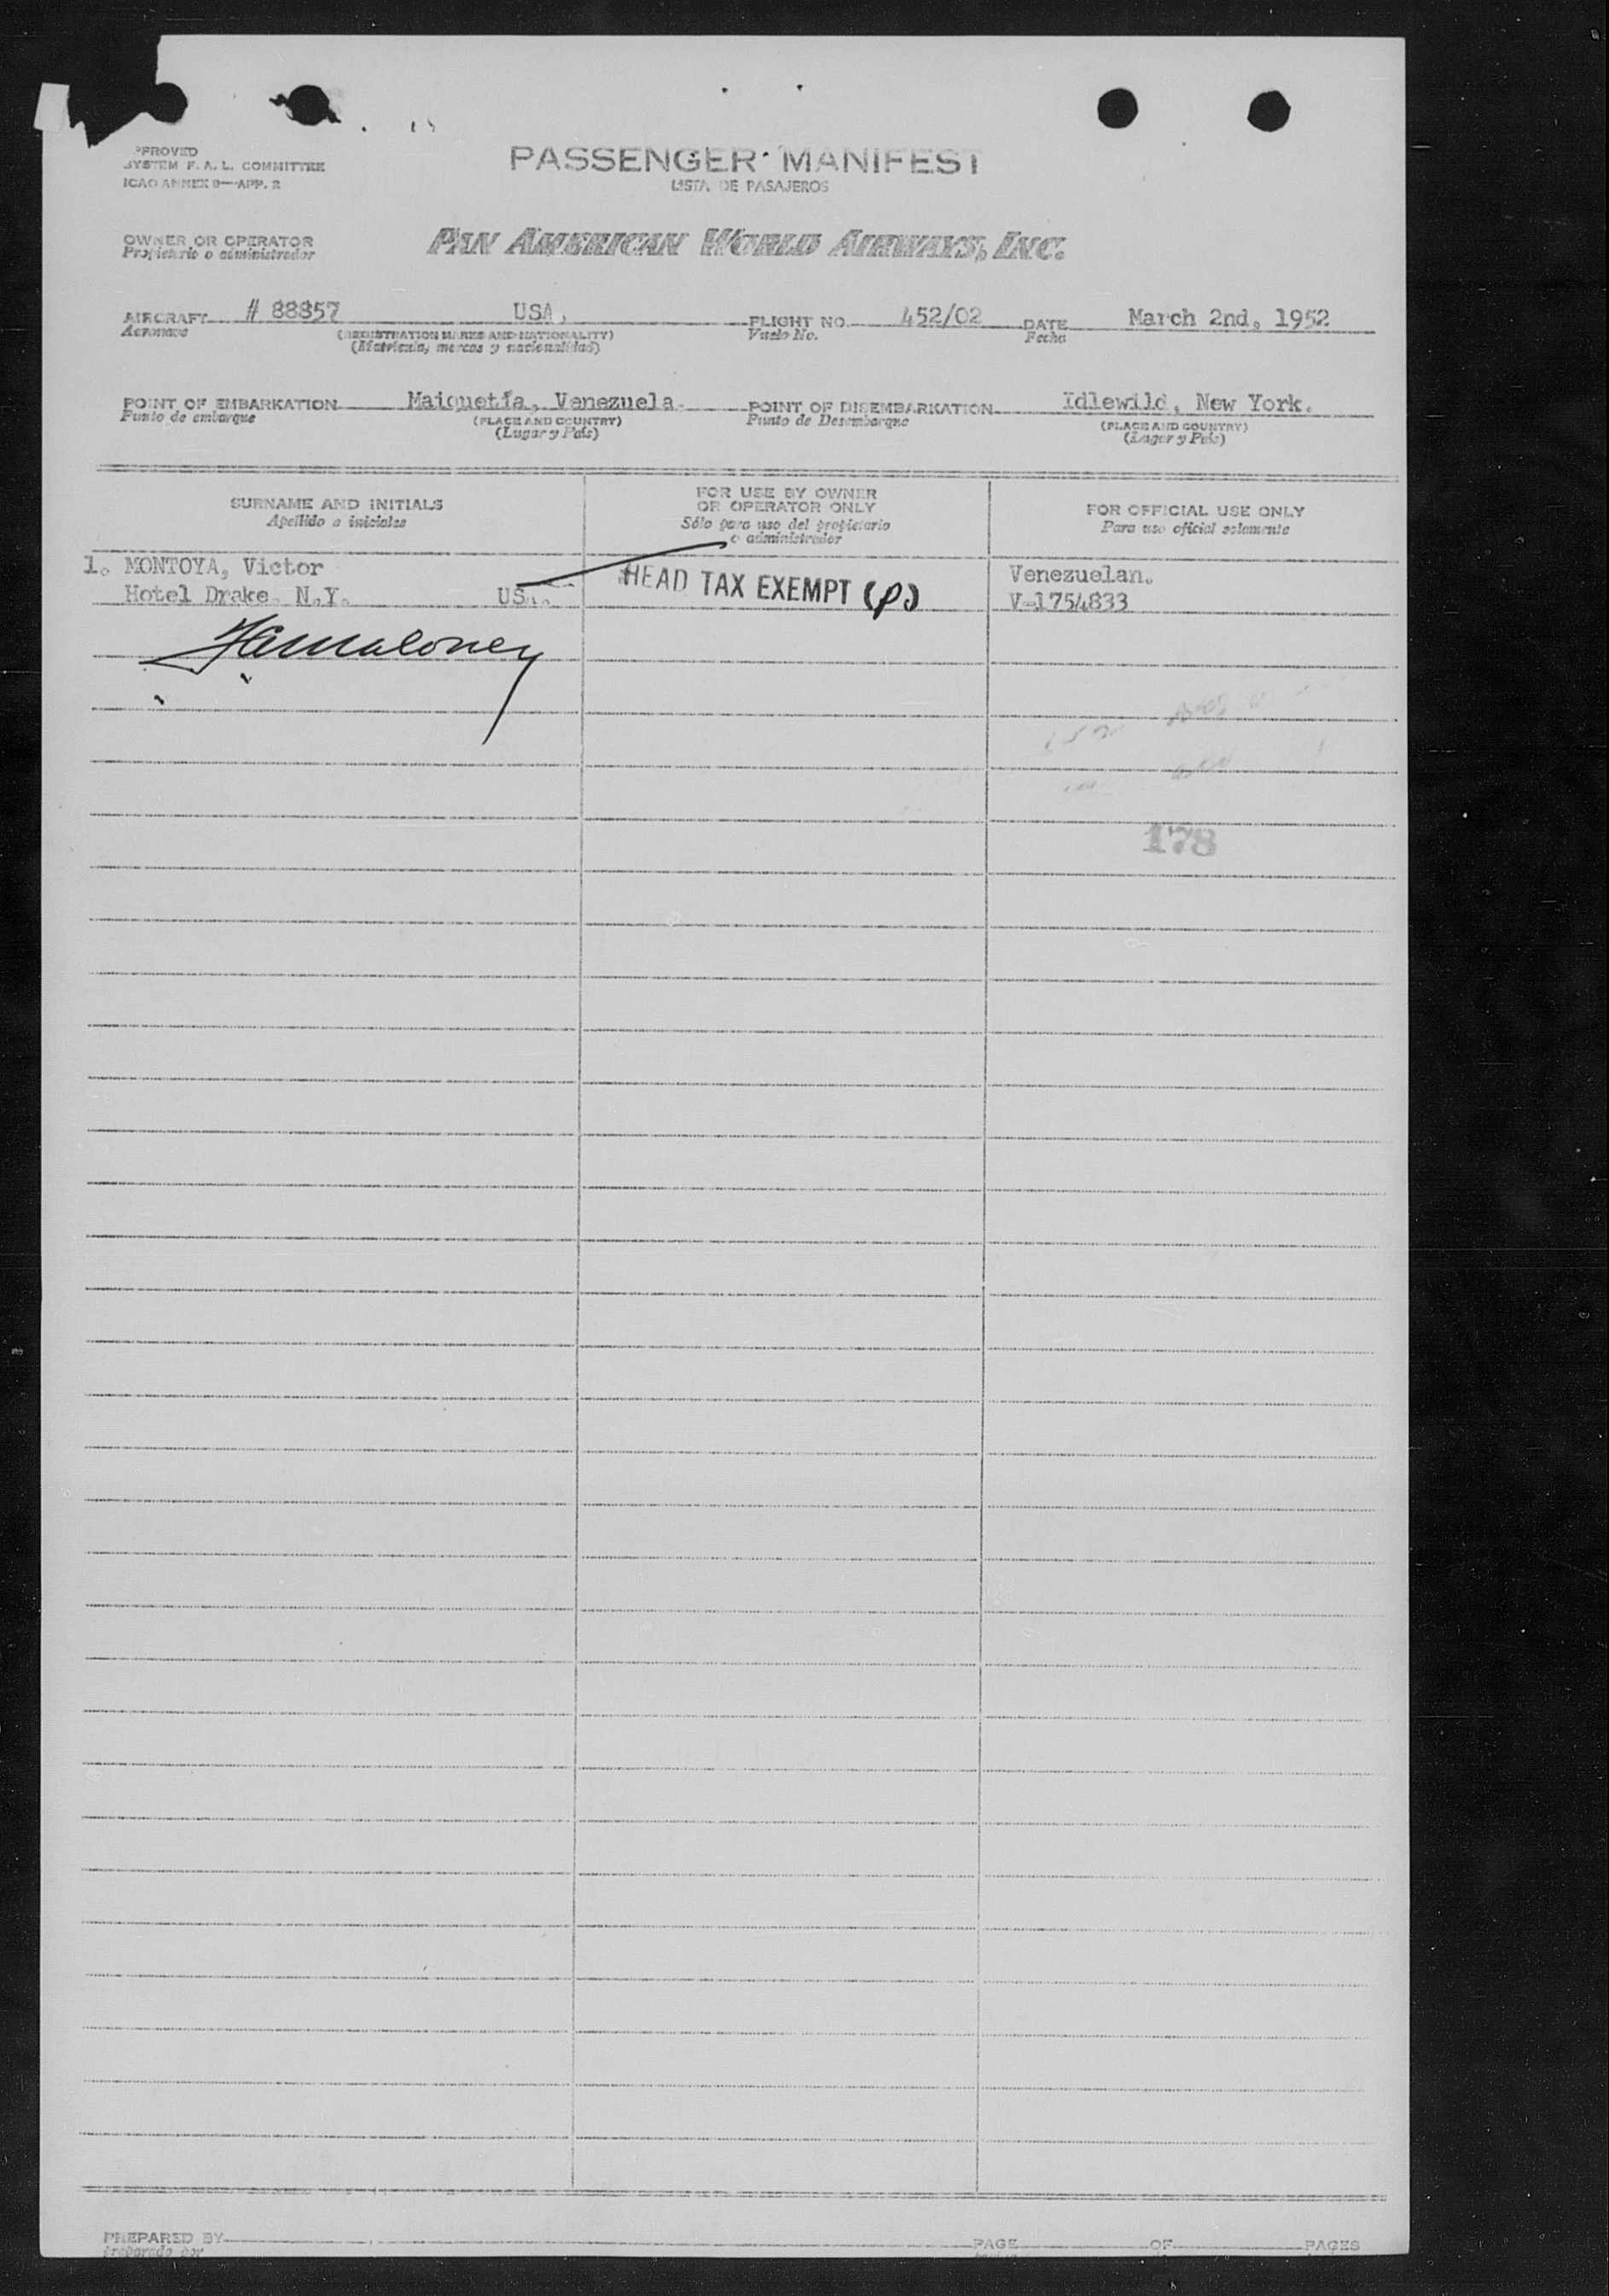 PPROVED
SYSTEM F. A. L. COMMITTEE
ICAO ANNEX 9—APP. 2
PASSENGER MANIFEST
LISTA DE PASAJEROS
OWNER OR OPERATOR
Propietario o administrador
PAN AMERICAN WORLD AIRWAYS, INC.
AIRCRAFT # 88857 USA. FLIGHT NO. 452/02 DATE March 2nd. 1952
Aeronave (REGISTRATION MARKS AND NATIONALITY) Vuelo No. Fecha
(Matrícula, marcas y nacionalidad)
POINT OF EMBARKATION Maiquetía, Venezuela. POINT OF DISEMBARKATION Idlewild, New York.
Punto de embarque (PLACE AND COUNTRY) Punto de Desembarque (PLACE AND COUNTRY)
(Lugar y País) (Lugar y País)
SURNAME AND INITIALS
Apellido a iniciales
FOR USE BY OWNER
OR OPERATOR ONLY
Sólo para uso del propietario
o administrador
FOR OFFICIAL USE ONLY
Para uso oficial solamente
1. MONTOYA, Victor HEAD TAX EXEMPT (P) Venezuelan.
Hotel Drake. N.Y. V-1754833
178
PREPARED BY PAGE OF PAGES
preparado por